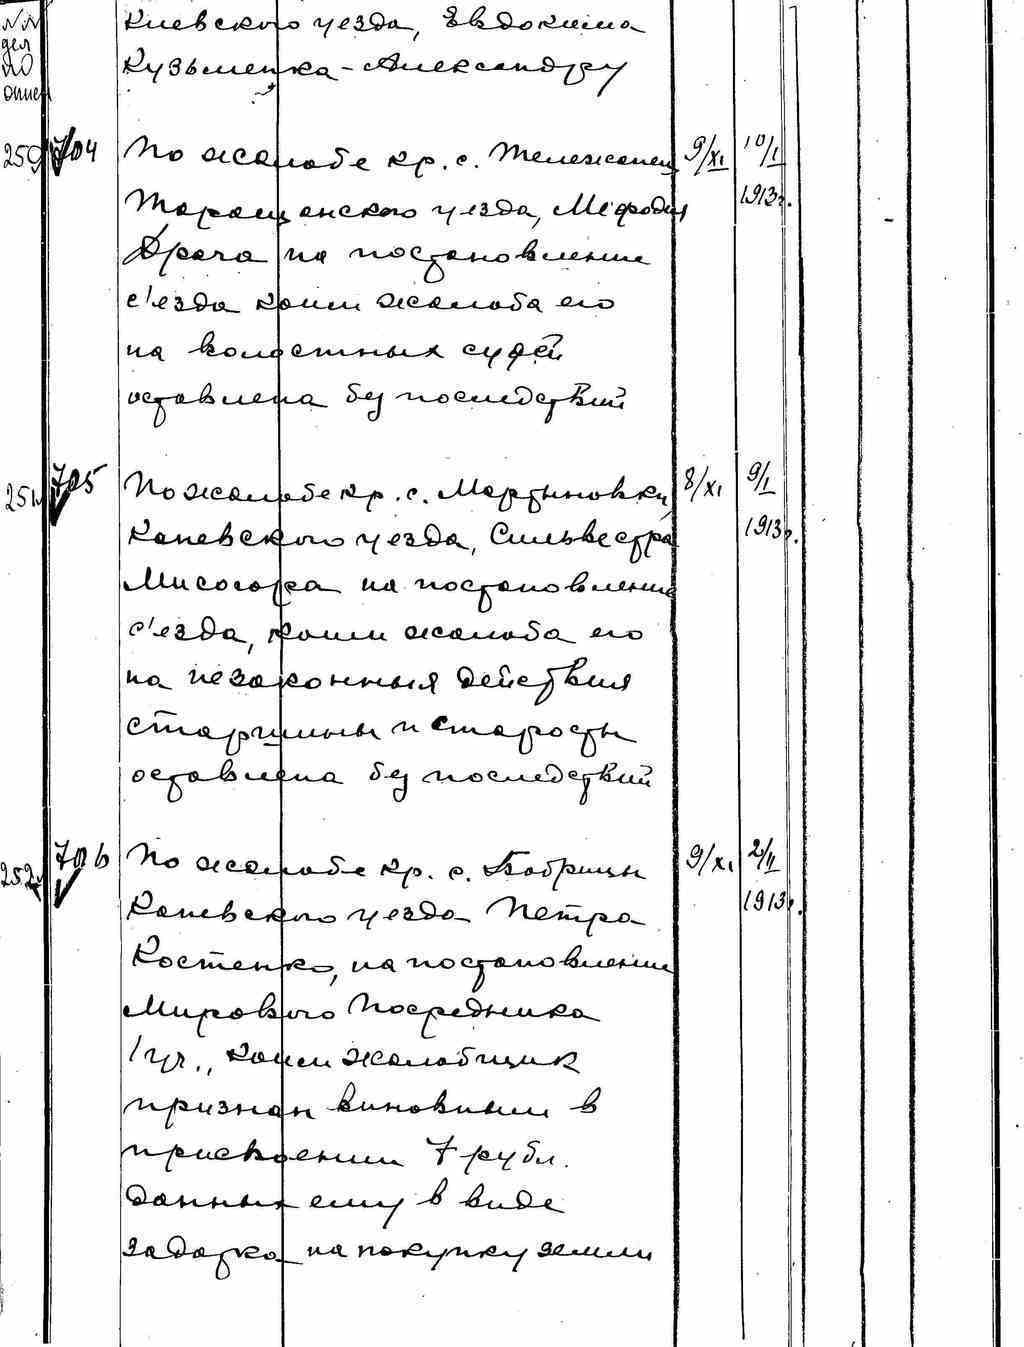 №№ Киевского уезда, Евдокима
дел
по Кузьменка - Александру
описи
704 По жалобе кр. с. Тележенец 9/XI 10/I
Таращанского уезда, Мефодия 1913г.
Драча на постановление
с'езда коим жалоба его
на волостных судей
оставлена без последствий
251 705 По жалобе кр. с. Мартыновки 8/XI 9/I
Каневского уезда, Сильвестра 1913г.
Мисюгора на постановление
с'езда, коим жалоба его
на незаконныя действия
старшины и старосты
оставлена без последствий
252 706 По жалобе кр. с. Бобрицы 9/XI 2/II
Каневского уезда Петра 1913г.
Костенко, на постановление
Мирового Посредника
1 уч., коим жалобщик
признан виновным в
присвоении 7 рубл.
данных ему в виде
задатка на покупку земли